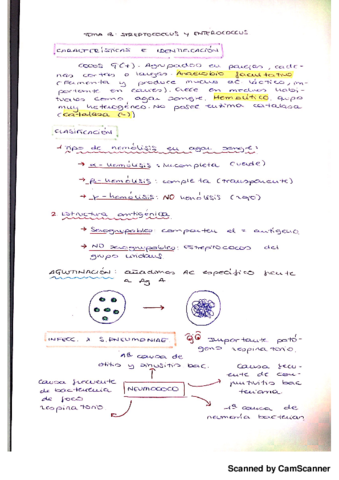 TEMA 8: STREPTOCOCCUS Y ENTEROCOCCUS
CARACTERÍSTICAS E IDENTIFICACIÓN
COCOS G(+). Agrupados en parejas, cade-
nas cortas o largas. Anaerobio facultativo
(fermenta y produce mucho ác láctico, im-
portante en caries). Crece en medios habi-
tuales como agar sangre. Hemolítico. Grupo
muy heterogéneo. No posee enzima catalasa
(catalasa (-))
CLASIFICACIÓN
1 Tipo de hemólisis en agar sangre:
→ α-hemólisis: incompleta (verde)
→ β-hemólisis: completa (transparente)
→ γ-hemólisis: NO hemólisis (rojo)
2 Estructura antigénica
→ Serogrupables: comparten el = antígeno
→ NO serogrupables: ESTREPTOCOCOS del
grupo viridans
AGLUTINACIÓN: añadimos AC específico frente
a Ag A
INFEC. X S. PNEUMONIAE
Importante pató-
geno respiratorio.
1ª causa de
otitis y sinusitis bac.
causa frecuente
de bacteriemia
de foco
respiratorio
NEUMOCOCO
causa frecu-
ente de con-
juntivitis bac
teriana
1ª causa de
neumonía bacteriana
Scanned by CamScanner